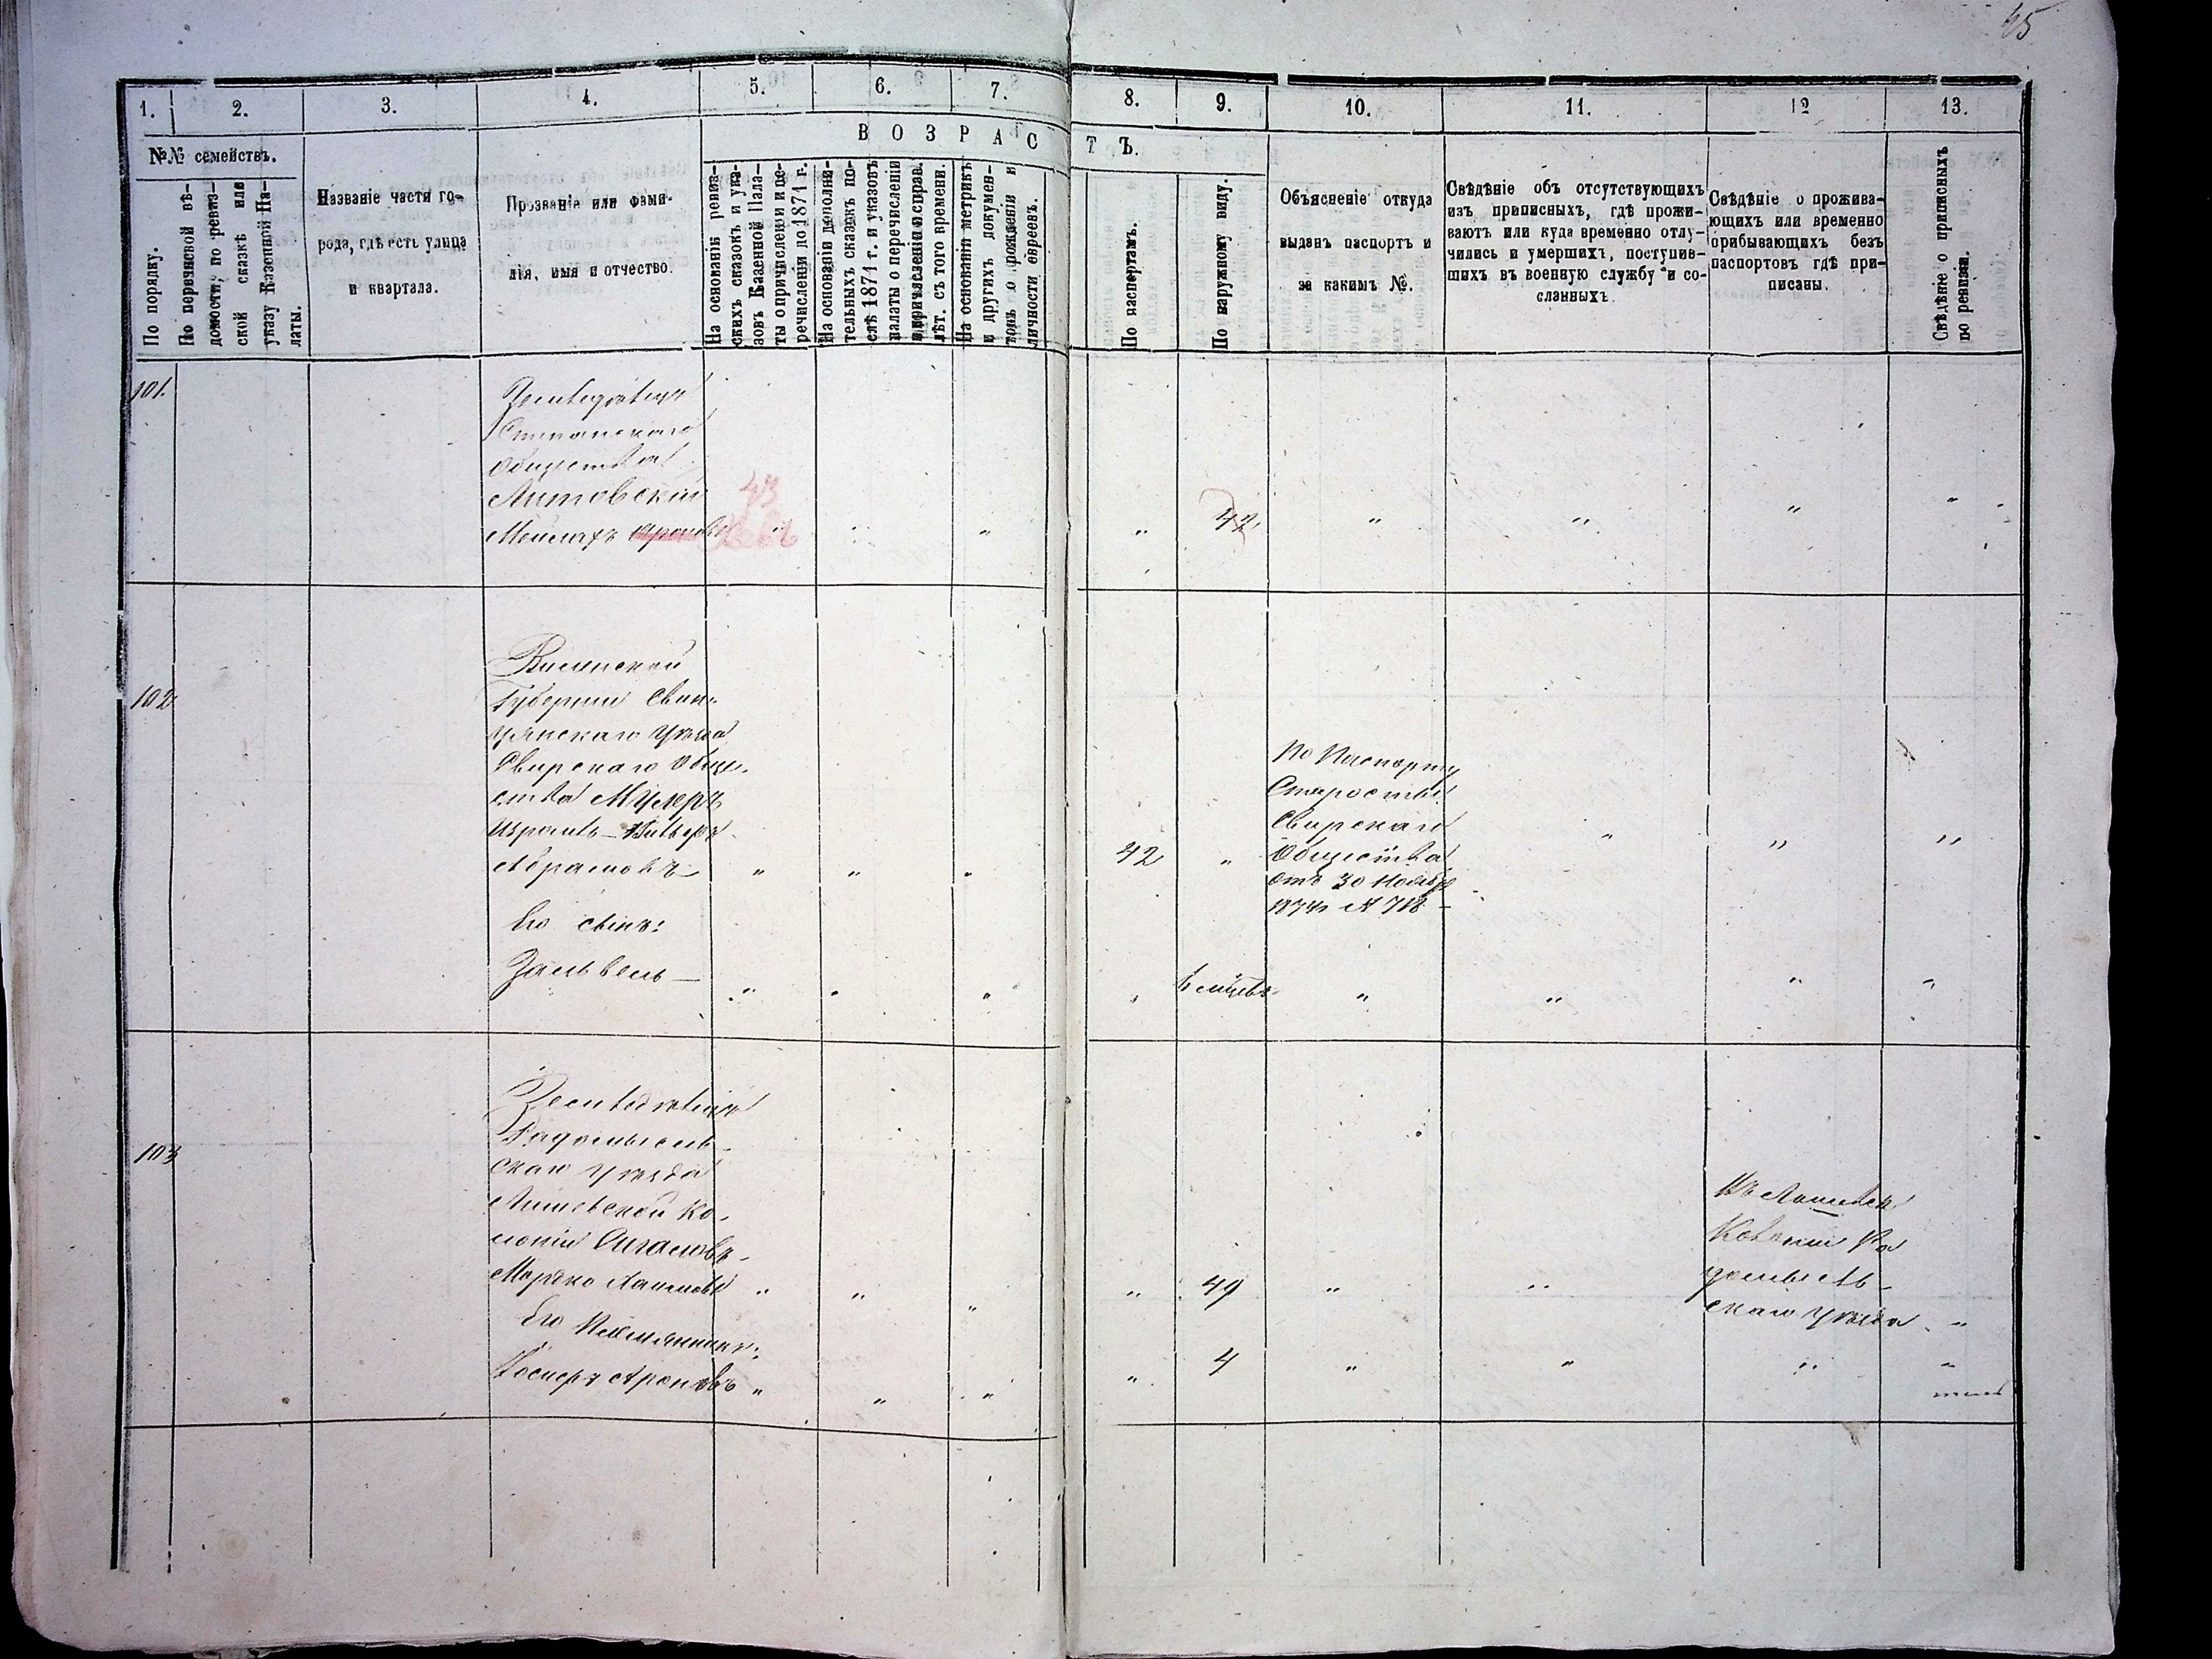 65
1. 2. 3. 4. 5. 6. 7. 8. 9. 10. 11. 12 13.
№№ семействъ.
По порядку.
По переписной вѣ-
домости, по ревиз-
ской сказкѣ или
указу Казенной Па-
латы.
Названіе части го-
рода, гдѣ есть улица
и квартала.
Прозваніе или фами-
лія, имя и отчество.
ВОЗРАСТЪ.
На основаніи ревиз-
скихъ сказокъ и ука-
зовъ Казенной Пала-
ты о причисленіи и пе-
речисленіи до 1871 г.
На основаніи дополни-
тельныхъ сказокъ по-
слѣ 1871 г. и указовъ
палаты о перечисленіи
и причисленіи и справ.
лѣт. съ того времени.
На основаніи метрикъ
и другихъ докумен-
товъ о рожденіи и
личности евреевъ.
По паспортамъ.
По наружному виду.
Объясненіе откуда
выданъ паспортъ и
за какимъ №.
Свѣдѣніе объ отсутствующихъ
изъ приписныхъ, гдѣ прожи-
ваютъ или куда временно отлу-
чились и умершихъ, поступив-
шихъ въ военную службу и со-
сланныхъ.
Свѣдѣніе о прожива-
ющихъ или временно
прибывающихъ безъ
паспортовъ гдѣ при-
писаны.
Свѣдѣніе о приписныхъ
по ревизіи.
101.
Степанскаго
Общества
Литовскій
Мейлахъ Ароновъ
43
" " " " 42 " " " "
102
Виленской
Губерніи Свин-
цянскаго Уѣзда
Свирскаго Обще-
ства Мулеръ
Израиль-
Абрамовъ " " " 42 "
По Паспорту
Старосты
Свирскаго
Общества
отъ 30 Ноября
1874 г № 718
" " "
Его сынъ:
Зальвель " " " " 6 мѣцевъ " " " "
103
Радомысль-
скаго Уѣзда
Ко-
лоніи
Мордко Хаимовъ " " " " 49 " "
Радомысль-
скаго Уѣзда "
Его Племянникъ:
Іосифъ Ароновъ " " " " 4 " " " "